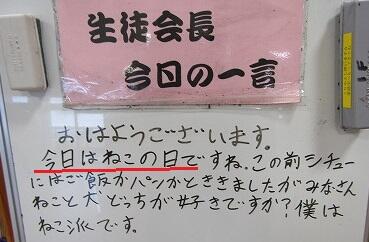 生徒会長
今日の一言
おはようございます。
今日はねこの日ですね。この前シチュー
にはご飯かパンかとききましたがみなさん
ねこと犬どっちが好きですか？僕は
ねこ派です。